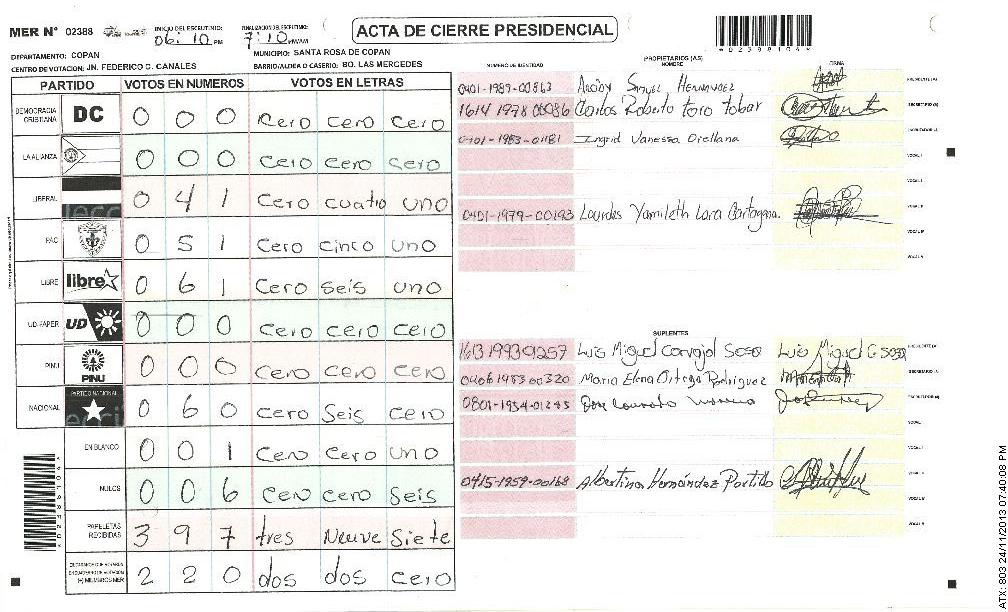 MER N° 02388
INICIO DEL ESCRUTINIO: 06:10 PM
FINALIZACION DEL ESCRUTINIO: 7:10 PM/AM
ACTA DE CIERRE PRESIDENCIAL
DEPARTAMENTO: COPAN
MUNICIPIO: SANTA ROSA DE COPAN
CENTRO DE VOTACIÓN: JN. FEDERICO C. CANALES
BARRIO/ALDEA O CASERIO: BO. LAS MERCEDES
PARTIDO VOTOS EN NUMEROS VOTOS EN LETRAS
DEMOCRACIA CRISTIANA DC 0 0 0 cero cero cero
LA ALIANZA 0 0 0 cero cero cero
LIBERAL 0 4 1 cero cuatro uno
PAC 0 5 1 cero cinco uno
LIBRE libre 0 6 1 cero seis uno
UD-FAPER UD 0 0 0 cero cero cero
PINU PINU 0 0 0 cero cero cero
NACIONAL PARTIDO NACIONAL 0 6 0 cero seis cero
EN BLANCO 0 0 1 cero cero uno
NULOS 0 0 6 cero cero seis
PAPELETAS RECIBIDAS 3 9 7 tres Nueve Siete
2 2 0 dos dos cero
PROPIETARIOS (AS)
NUMERO DE IDENTIDAD NOMBRE FIRMA
0401-1989-00863 Hernandez
1614 1978 00086 Carlos Roberto Toro Tobar
0401-1983-01181 Ingrid Vanessa Orellana
0401-1979-00193 Lourdes Yamileth Lara Cartagena
SUPLENTES
1613199300257 Luis Miguel Carvajal Sosa Luis Miguel C Sosa
0406198300320 Maria Elena Ortega Rodriguez
0801-1954-01245 Jose
0415-1959-00168 Albertina Hernández Portillo
ATX: 803 24/11/2013 07:40:08 PM